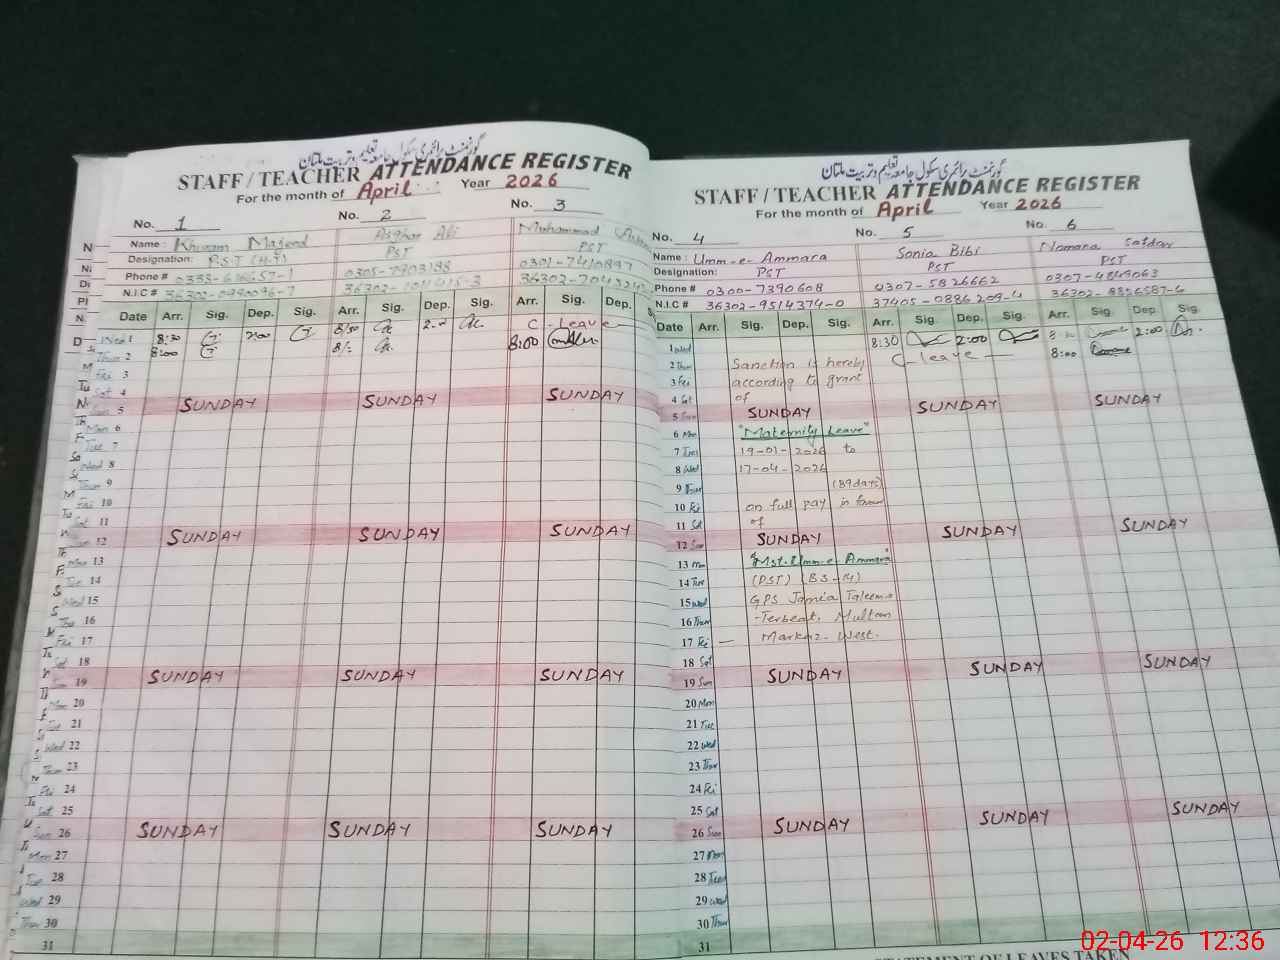 گورنمنٹ پرائمری سکول جامعہ تعلیم و تربیت ملتان
STAFF / TEACHER ATTENDANCE REGISTER
For the month of April Year 2026
No. 1 No. 2 No. 3
Name: Khuram Majeed Asghar Ali Muhammad
Designation: PST (H.T) PST PST
Phone # 0305-7903188 0301-7410897
N.I.C #
Date Arr. Sig. Dep. Sig. Arr. Sig. Dep. Sig. Arr. Sig. Dep.
Wed 1 8:30 2:00 8:30 C-Leave
Thur 2 8:00 8:00
Fri 3
Sat 4
Sun 5 SUNDAY SUNDAY SUNDAY
Mon 6
Tue 7
Wed 8
Thur 9
Fri 10
Sat 11
12 SUNDAY SUNDAY SUNDAY
Mon 13
Tue 14
Wed 15
Thu 16
Fri 17
Sat 18
Sun 19 SUNDAY SUNDAY SUNDAY
Mon 20
Tue 21
Wed 22
Thur 23
Fri 24
Sat 25
Sun 26 SUNDAY SUNDAY SUNDAY
Mon 27
Tue 28
Wed 29
Thu 30
31
گورنمنٹ پرائمری سکول جامعہ تعلیم و تربیت ملتان
STAFF / TEACHER ATTENDANCE REGISTER
For the month of April Year 2026
No. 4 No. 5 No. 6
Name: Umm-e-Ammara Sonia Bibi Nomana Safdar
Designation: PST PST PST
Phone # 0300-7390608 0307-5826662
N.I.C # 36302-9514374-0 37405-0886209-4
Date Arr. Sig. Dep. Sig. Arr. Sig. Dep. Sig. Arr. Sig. Dep. Sig.
1 Wed 8:30 2:00 2:00
2 Thur Sanction is hereby C-leave 8:00
3 Fri according to grant
4 Sat of
5 Sun SUNDAY SUNDAY SUNDAY
6 Mon "Maternity Leave"
7 Tue 19-01-2026 to
8 Wed 17-04-2026
9 Thur (89 days)
10 Fri on full pay in favour
11 Sat of
12 Sun SUNDAY SUNDAY SUNDAY
13 Mon "Mst. Umm-e-Ammara"
14 Tue (PST) (BS-14)
15 Wed GPS Jamia Taleem-o
16 Thur -Terbeat, Multan
17 Fri Markaz-West.
18 Sat
19 Sun SUNDAY SUNDAY SUNDAY
20 Mon
21 Tue
22 Wed
23 Thur
24 Fri
25 Sat
26 Sun SUNDAY SUNDAY SUNDAY
27 Mon
28 Tue
29 Wed
30 Thur
31
STATEMENT OF LEAVES TAKEN
02-04-26 12:36